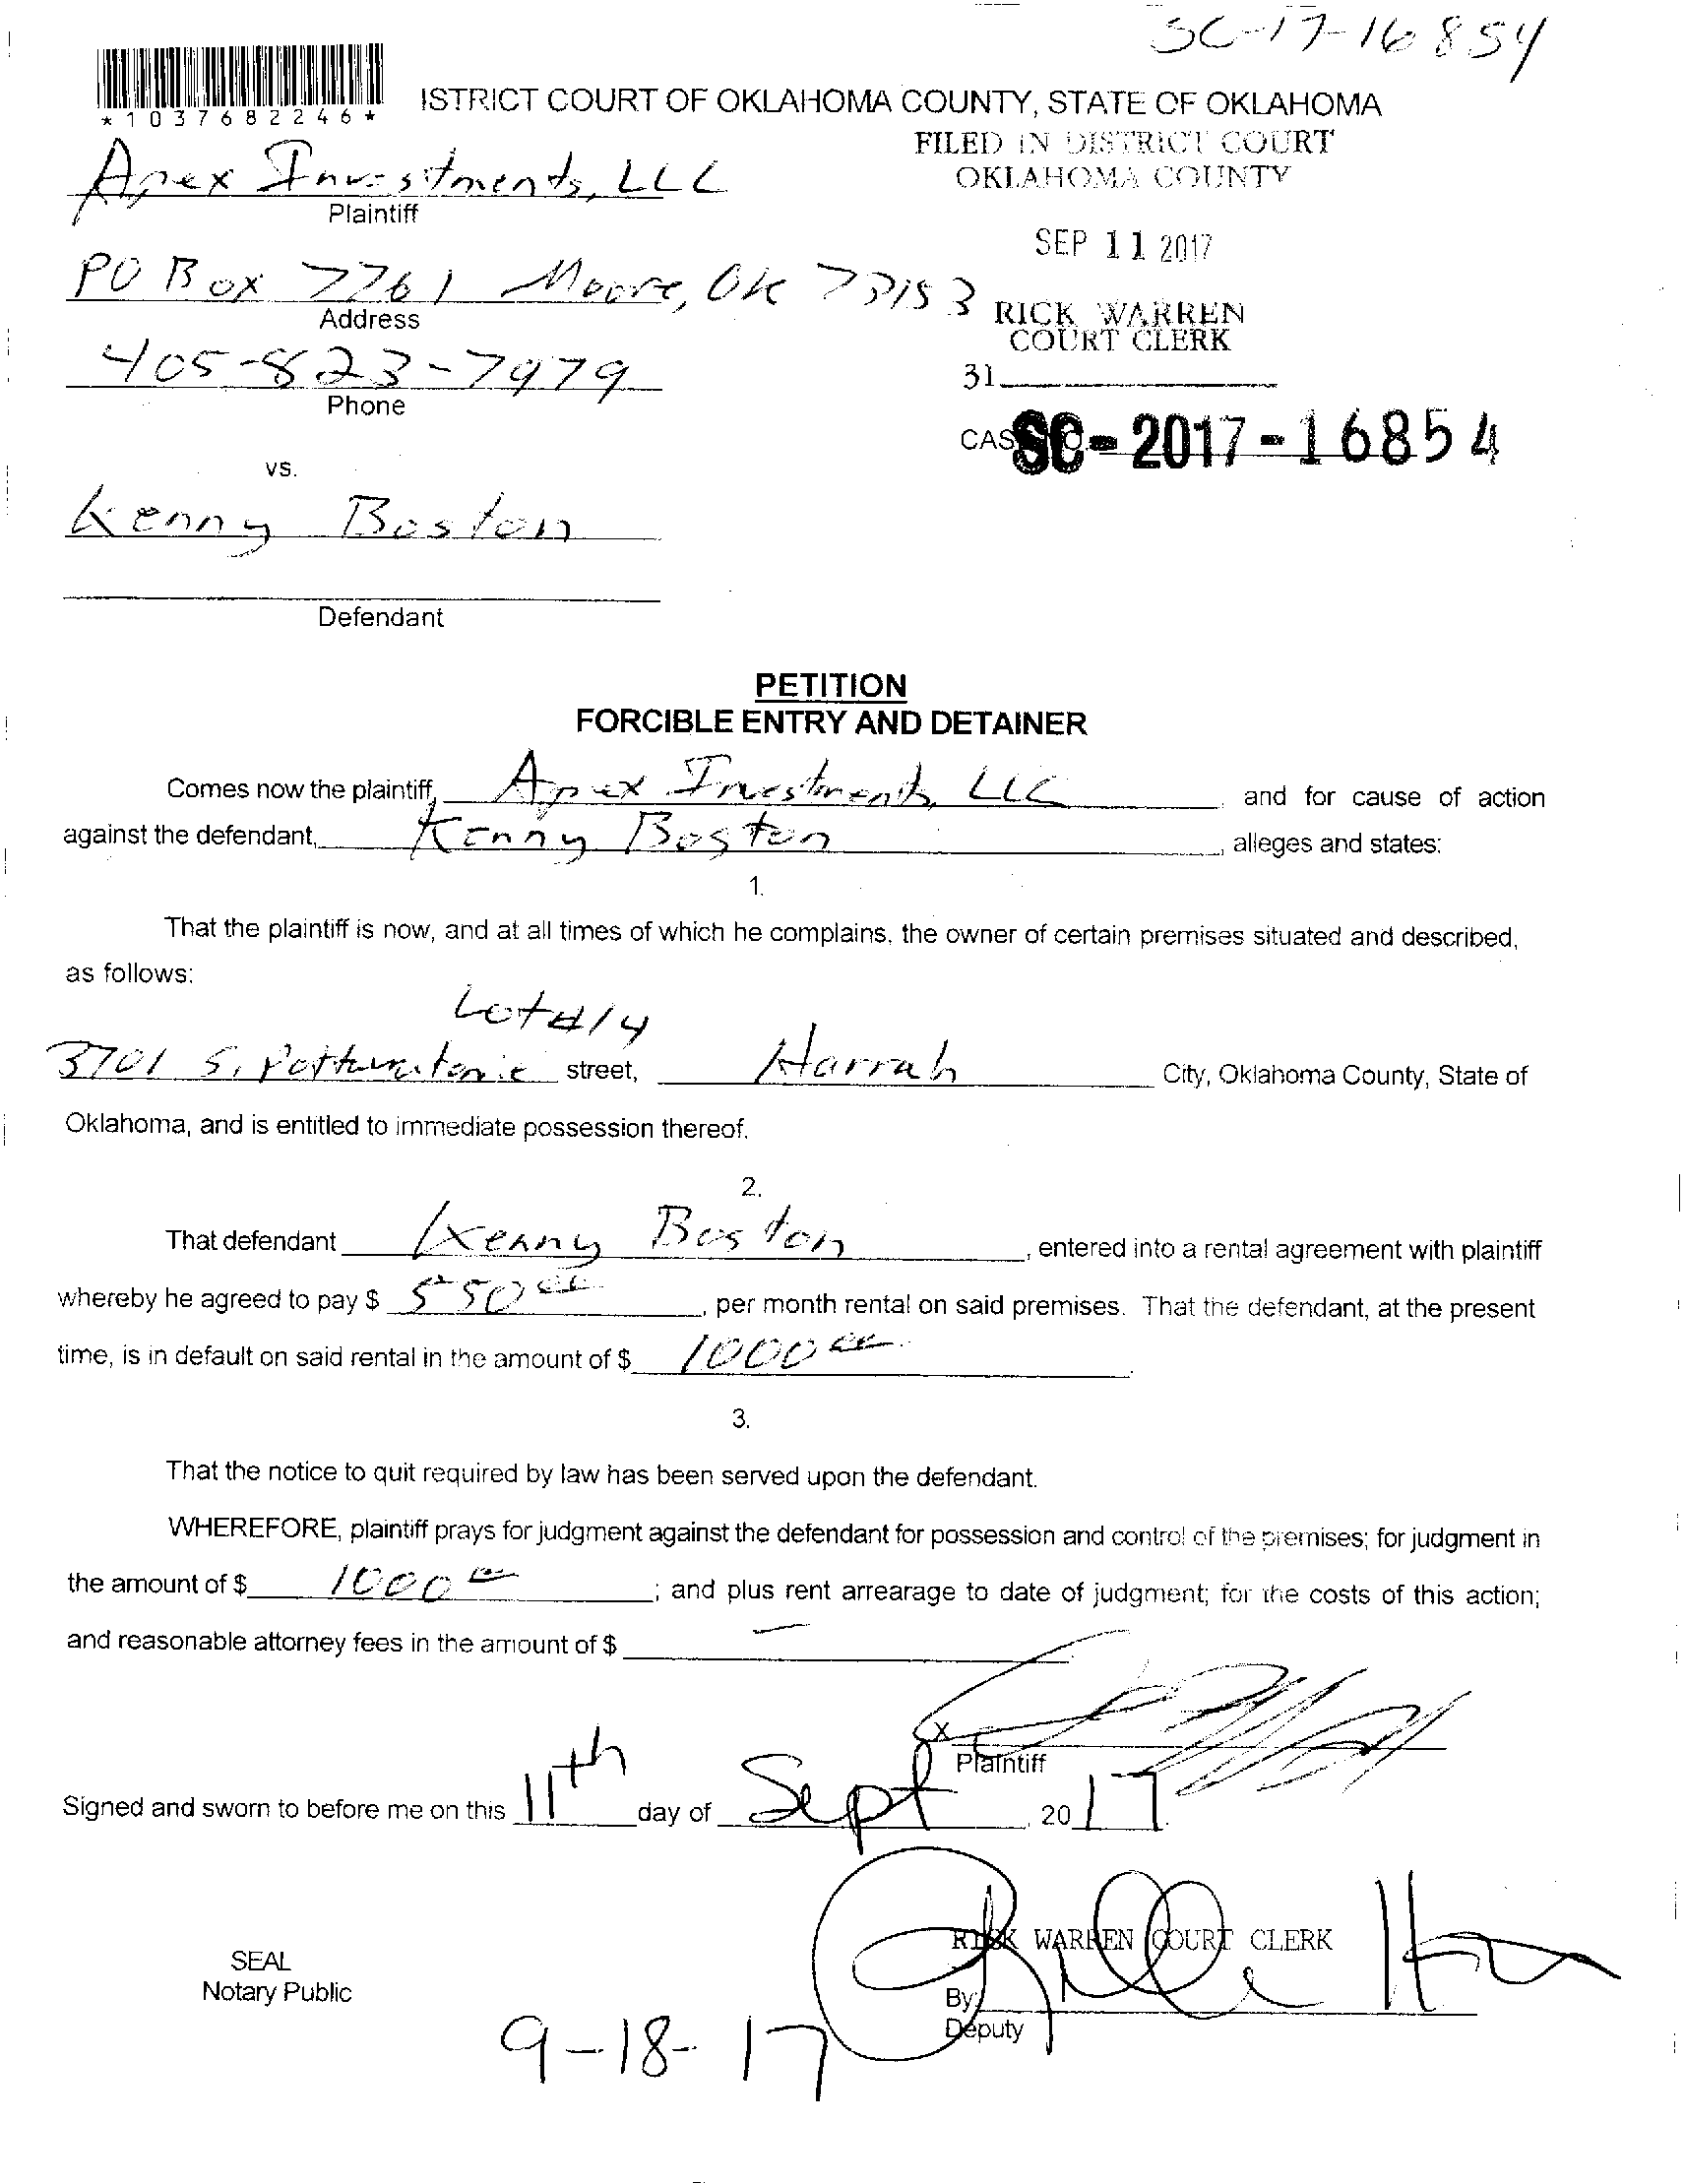 SC-17-16854
*1037682246*
ISTRICT COURT OF OKLAHOMA COUNTY, STATE OF OKLAHOMA
FILED IN DISTRICT COURT
OKLAHOMA COUNTY
Apex Investments, LLC
Plaintiff
SEP 11 2017
PO Box 7761 Moore, OK 73153
Address
RICK WARREN
COURT CLERK
405-823-7979
Phone
31
CAS SC-2017-16854
vs.
Kenny Boston
Defendant
PETITION
FORCIBLE ENTRY AND DETAINER
Comes now the plaintiff, Apex Investments, LLC and for cause of action
against the defendant, Kenny Boston, alleges and states:
1.
That the plaintiff is now, and at all times of which he complains, the owner of certain premises situated and described,
as follows:
Lot #14
3701 S. Pottawatomie street, Harrah City, Oklahoma County, State of
Oklahoma, and is entitled to immediate possession thereof.
2.
That defendant Kenny Boston, entered into a rental agreement with plaintiff
whereby he agreed to pay $ 550 00, per month rental on said premises. That the defendant, at the present
time, is in default on said rental in the amount of $ 1000 00.
3.
That the notice to quit required by law has been served upon the defendant.
WHEREFORE, plaintiff prays for judgment against the defendant for possession and control of the premises; for judgment in
the amount of $ 1000 00; and plus rent arrearage to date of judgment; for the costs of this action;
and reasonable attorney fees in the amount of $ —
X
Plaintiff
Signed and sworn to before me on this 11th day of Sept, 2017.
RICK WARREN COURT CLERK
SEAL
Notary Public
By:
Deputy
9-18-17